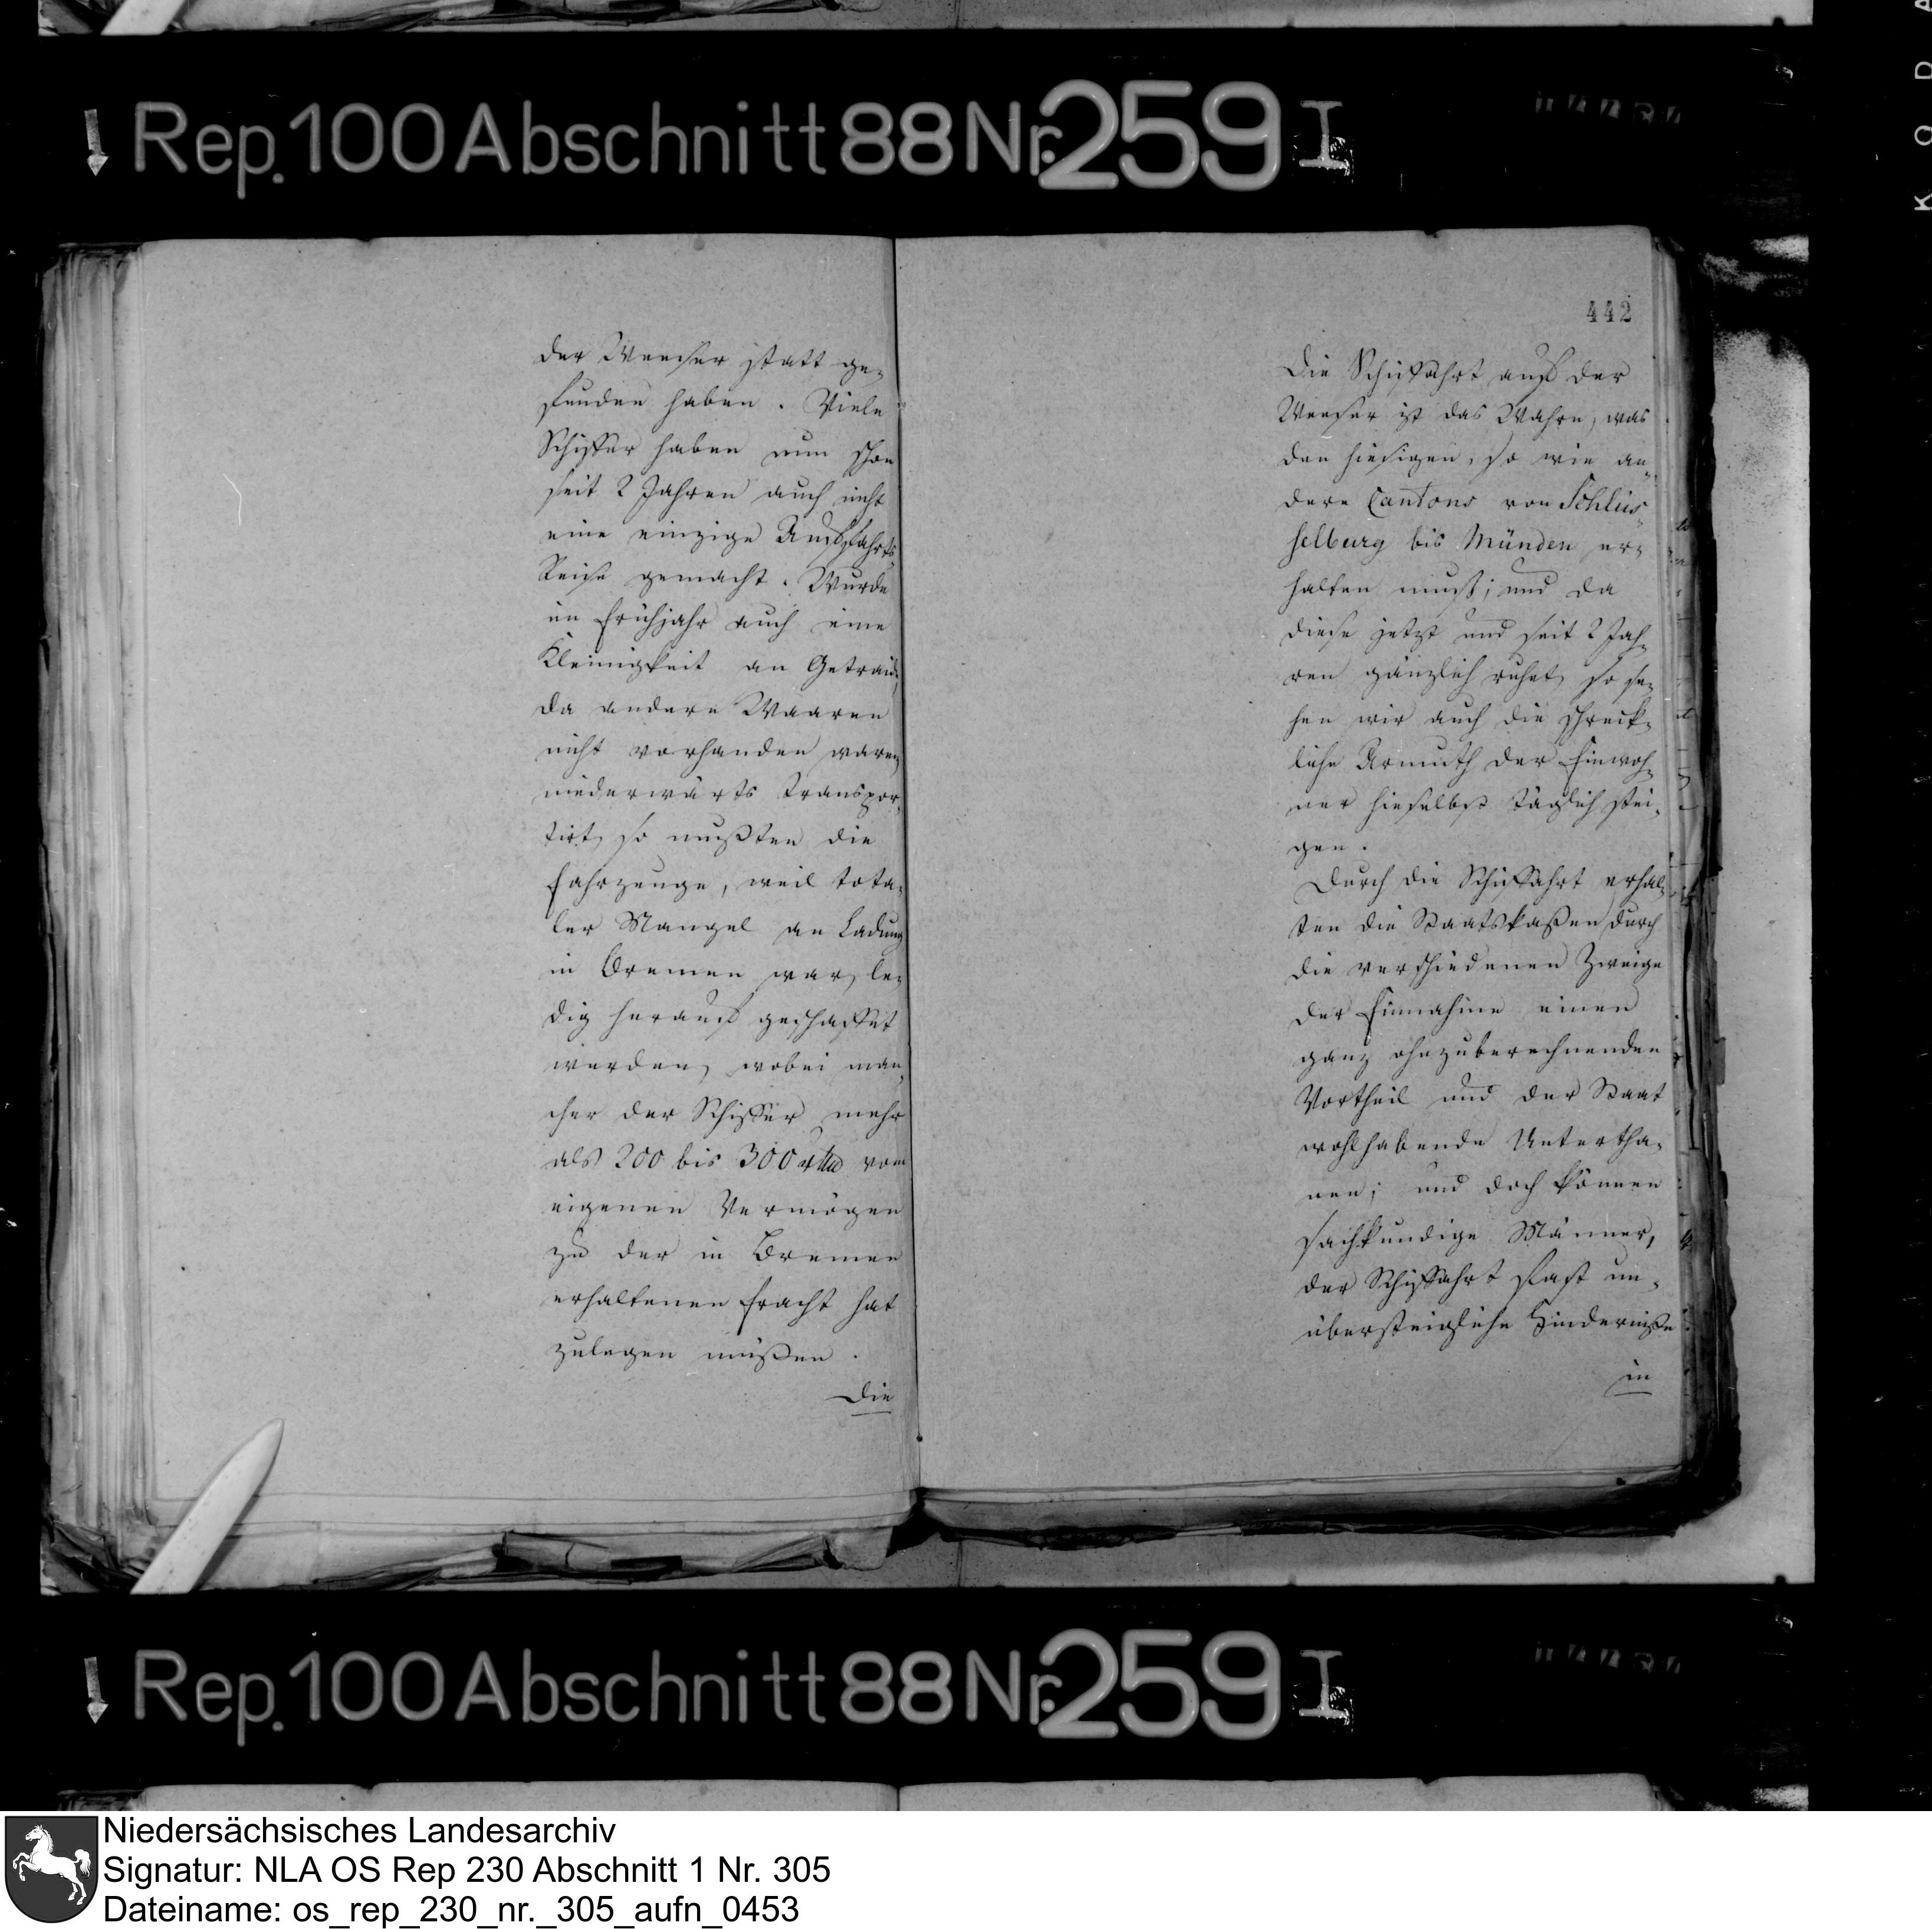 Rep. 100 Abschnitt 88 Nr. 259 I
der Weeser statt ge-
funden haben. Viele
Schiffer haben nun schon
seit 2 Jahren auch nicht
eine einzige Ausfahrts
Reise gemacht. Wurde
im Frühjahr auch eine
Kleinigkeit an Getraide,
da andere Waaren
nicht vorhanden waren,
niederwärts transpor-
tirt, so mußten die
Fahrzeuge, weil tota-
ler Mangel an Ladung
in Bremen war, le-
dig herauf geschaffet
werden, wobei man-
cher der Schiffer mehr
als 200 bis 300 rthlr vom
eigenen Vermögen
zu der in Bremen
erhaltenen Fracht hat
zulegen müßen.
Die
442
Die Schiffahrt auf der
Weeser ist das Wahre, was
den hiesigen, so wie an-
dere Cantons von Schlüs-
selburg bis Münden er-
halten muß; und da
diese jetzt und seit 2 Jah-
ren gänzlich ruhet, so se-
hen wir auch die schreck-
liche Armuth der Einwoh-
ner hieselbst täglich stei-
gen.
Durch die Schiffahrt erhal-
ten die Staatskaßen durch
die verschiedenen Zweige
der Einnahme einen
ganz ohnzuberechnenden
Vortheil und der Staat
wohlhabende Untertha-
nen; und doch können
sachkundige Männer,
der Schiffahrt fast un-
übersteigliche Hinderniße
in
Rep. 100 Abschnitt 88 Nr. 259 I
Niedersächsisches Landesarchiv
Signatur: NLA OS Rep 230 Abschnitt 1 Nr. 305
Dateiname: os_rep_230_nr._305_aufn_0453